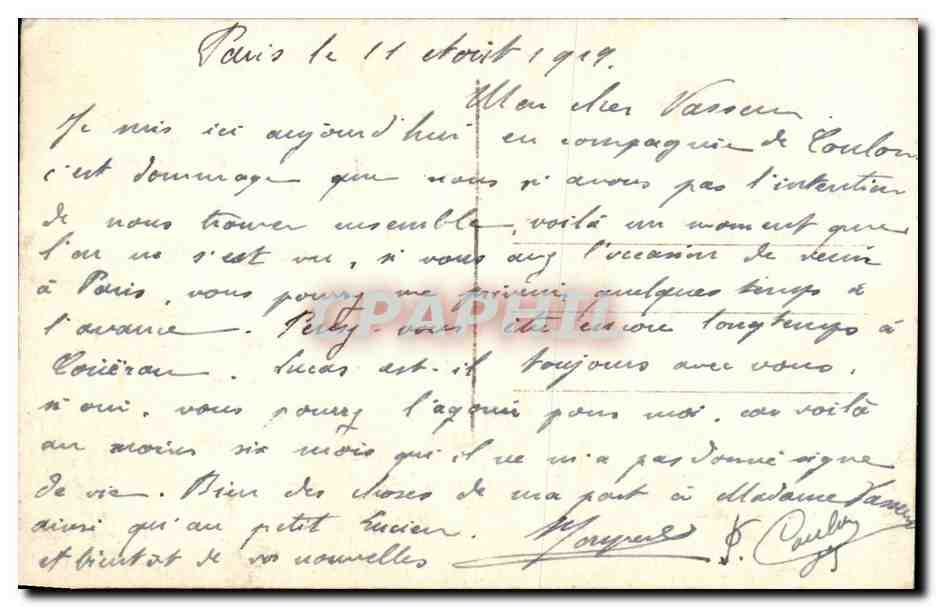 Paris le 11 Août 1919.
Mon cher Vasseur
Je suis ici aujourd'hui en compagnie de Coulon
c'est dommage que nous n'avons pas l'intention
de nous trouver ensemble, voilà un moment que
l'on ne s'est vu, si vous avez l'occasion de venir
à Paris, vous pourrez me prévenir quelques temps à
l'avance. Pensez vous être encore longtemps à
Couëron. Lucas est-il toujours avec vous,
si oui, vous pourrez l'agonir pour moi, car voilà
au moins six mois qu'il ne m'a pas donné signe
de vie. Bien des choses de ma part à Madame Vasseur
ainsi qu'au petit Lucien.
et bientôt de vos nouvelles
Coulon
CPAPHIL